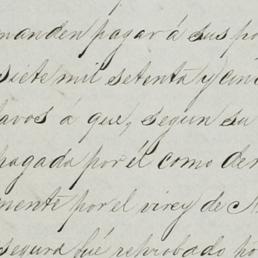 manden pagar á sus po
siete mil setenta y cin
tavos á que, segun su
pagada por él como der
mente por el virey de
segura fué reprobado po